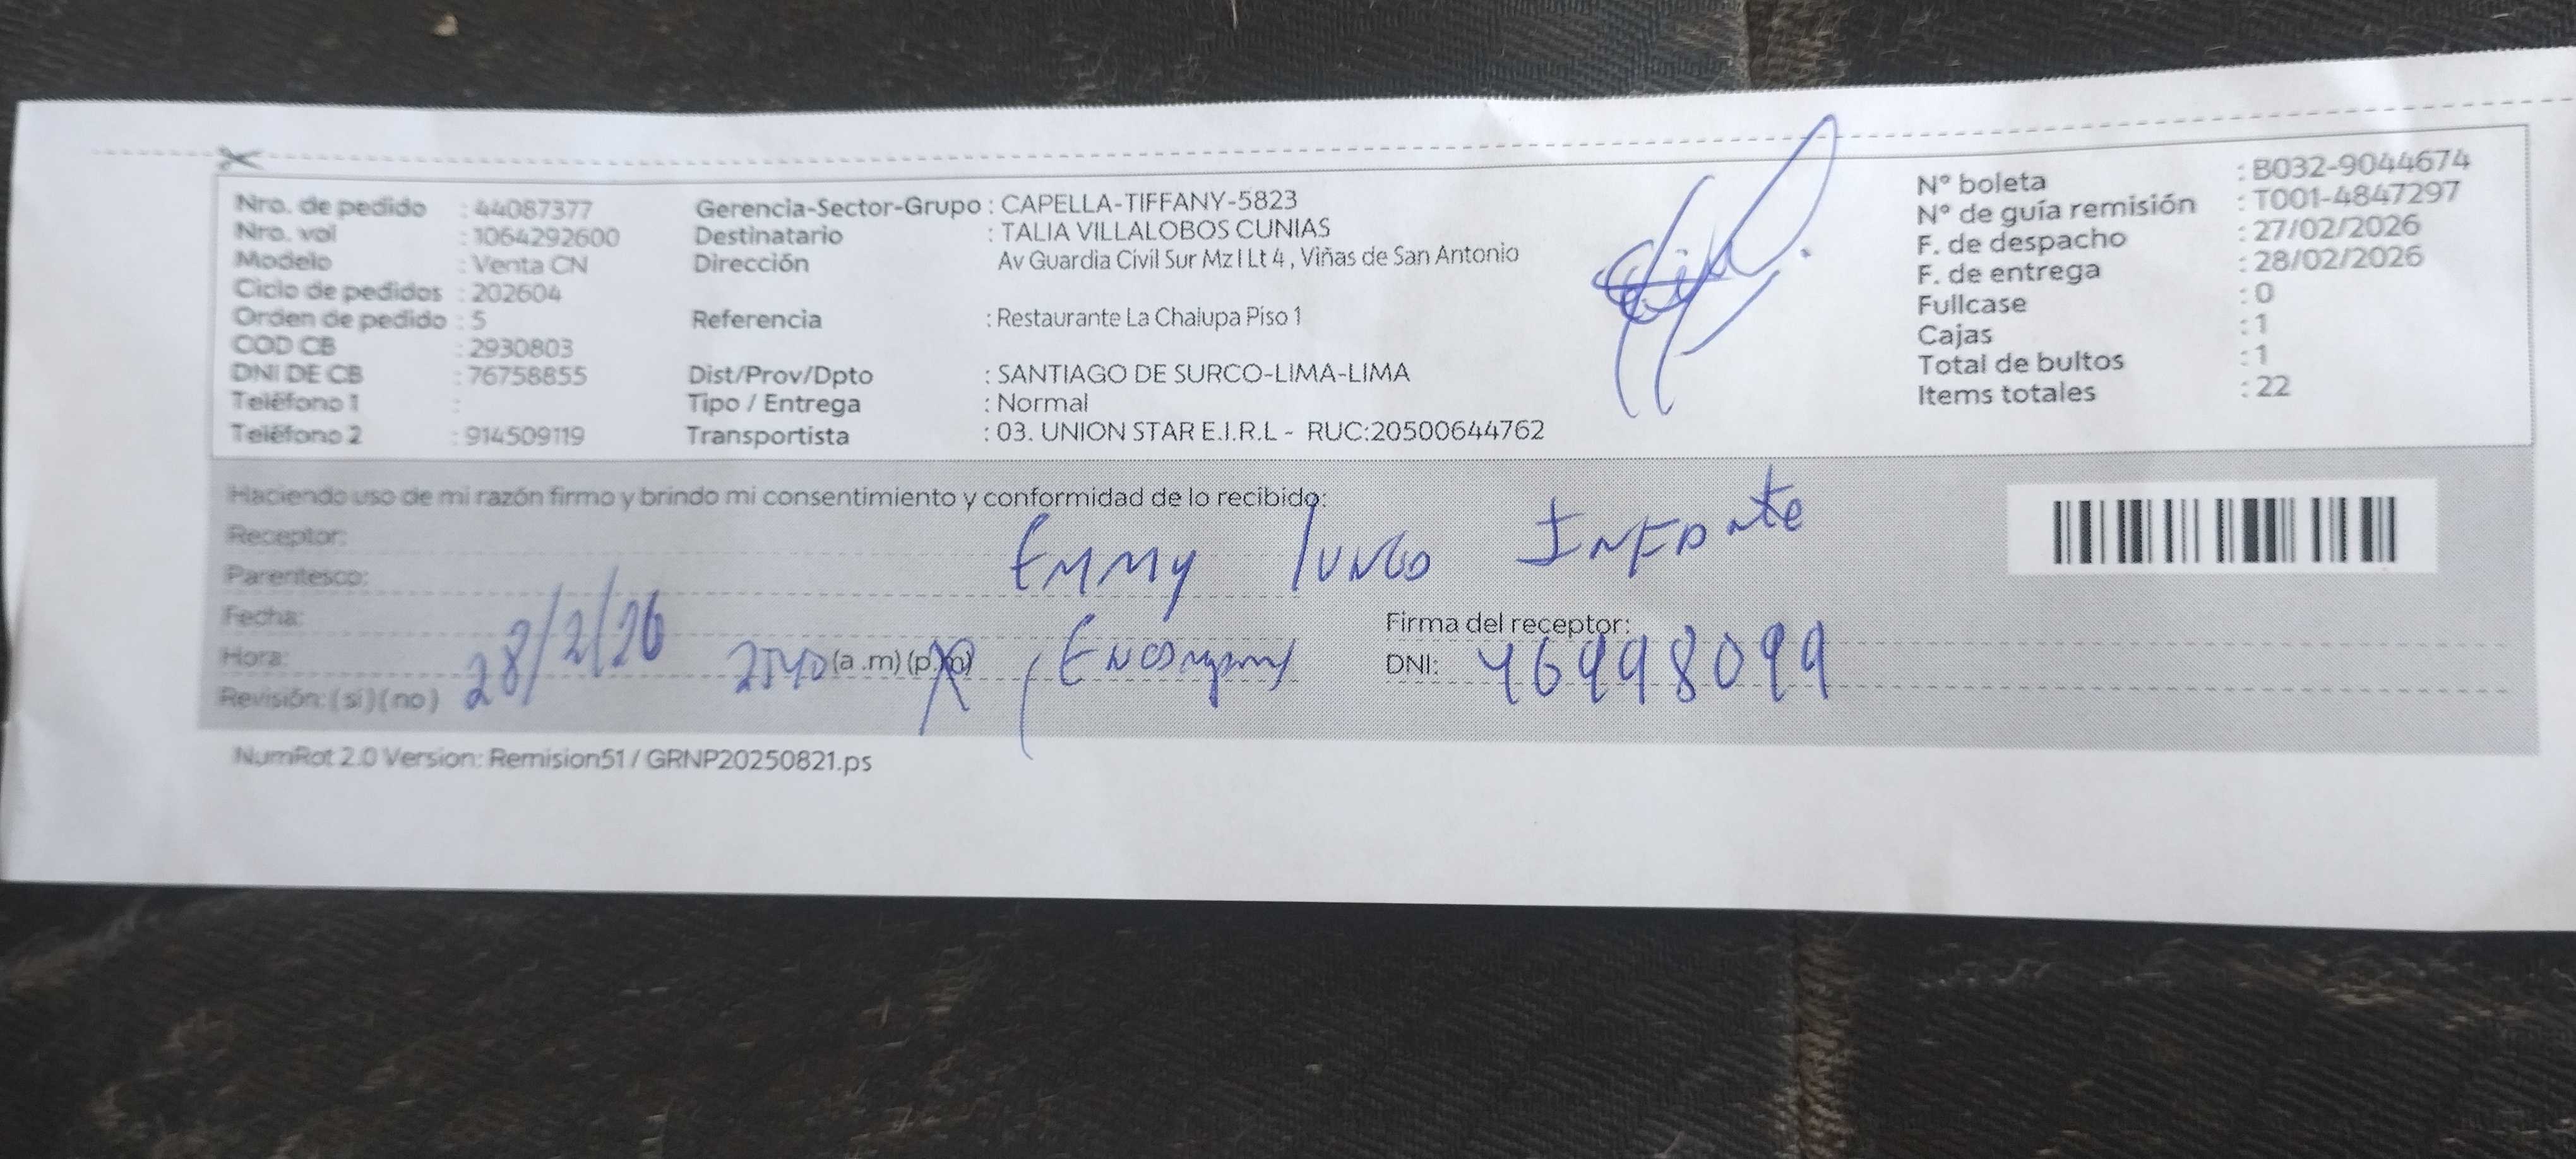 Nro. de pedido : 44087377
Nro. vol : 1064292600
Modelo : Venta CN
Ciclo de pedidos : 202604
Orden de pedido : 5
COD CB : 2930803
DNI DE CB : 76758855
Teléfono 1 :
Teléfono 2 : 914509119
Gerencia-Sector-Grupo : CAPELLA-TIFFANY-5823
Destinatario : TALIA VILLALOBOS CUNIAS
Dirección Av Guardia Civil Sur Mz I Lt 4 , Viñas de San Antonio
Referencia : Restaurante La Chalupa Piso 1
Dist/Prov/Dpto : SANTIAGO DE SURCO-LIMA-LIMA
Tipo / Entrega : Normal
Transportista : 03. UNION STAR E.I.R.L - RUC:20500644762
N° boleta : B032-9044674
N° de guía remisión : T001-4847297
F. de despacho : 27/02/2026
F. de entrega : 28/02/2026
Fullcase : 0
Cajas : 1
Total de bultos : 1
Items totales : 22
Haciendo uso de mi razón firmo y brindo mi consentimiento y conformidad de lo recibido:
Receptor: Emmy Infante
Parentesco:
Fecha: 28/2/26
Firma del receptor:
Hora: (a .m) (p.m)
DNI: 46998099
Revisión: ( si ) ( no )
NumRot 2.0 Version: Remision51 / GRNP20250821.ps